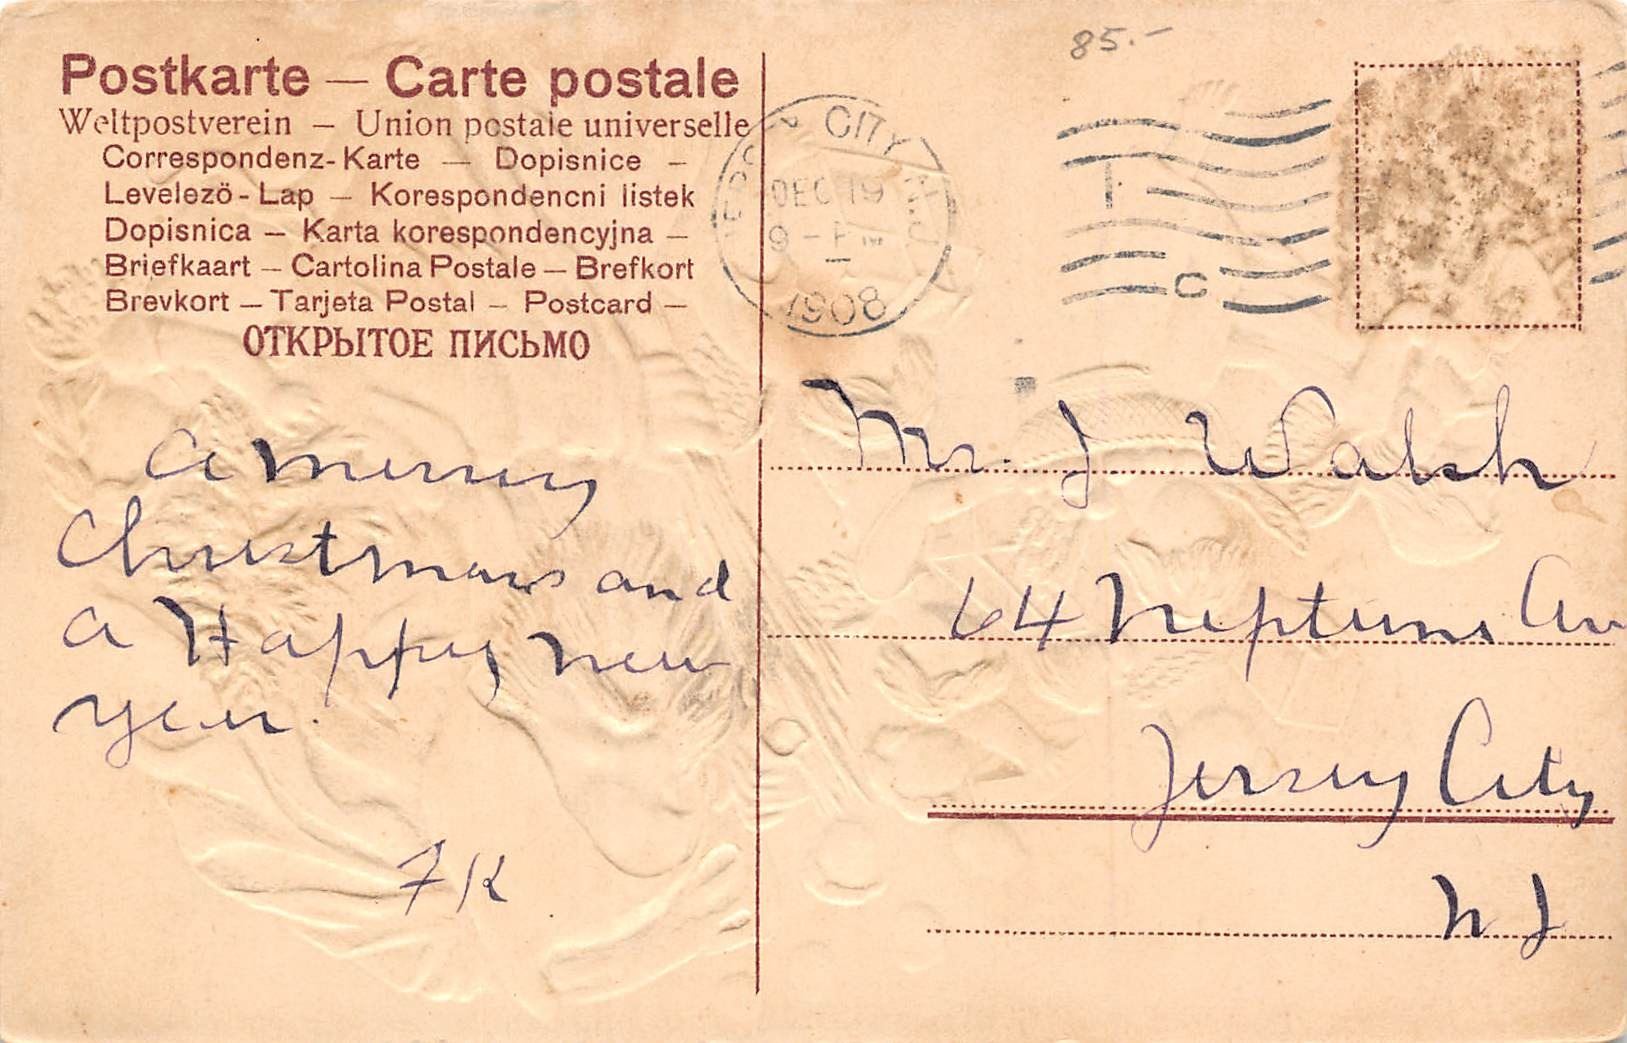 85.-
Postkarte — Carte postale
Weltpostverein — Union postale universelle
Correspondenz-Karte — Dopisnice —
Levelező-Lap — Korespondencni listek
Dopisnica — Karta korespondencyjna —
Briefkaart — Cartolina Postale — Brefkort
Brevkort — Tarjeta Postal — Postcard —
ОТКРЫТОЕ ПИСЬМО
CITY
DEC 19
9 - PM
1908
C
A Merry
Christmas and
a Happy New
Year.
FK
Mr. J. Walsh
64 Neptune Av
Jersey City
N J